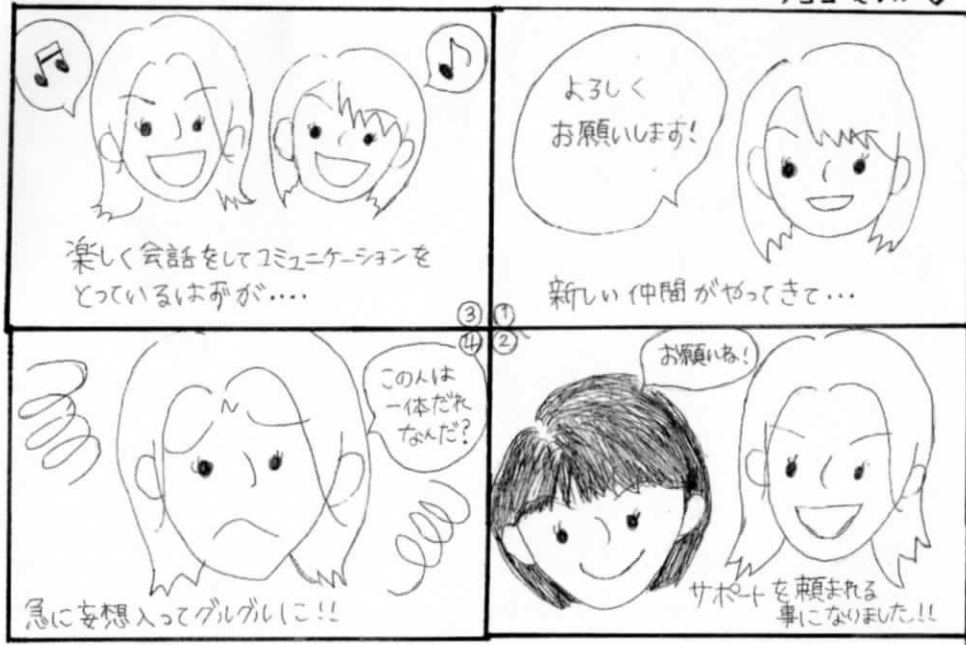 よろしく
お願いします!
新しい仲間がやってきて…
①
②
お願いね!
サポートを頼まれる
事になりました!!
楽しく会話をしてコミュニケーションを
とっているはずが‥‥
③
④
この人は
一体だれ
なんだ?
急に妄想入ってグルグルに!!